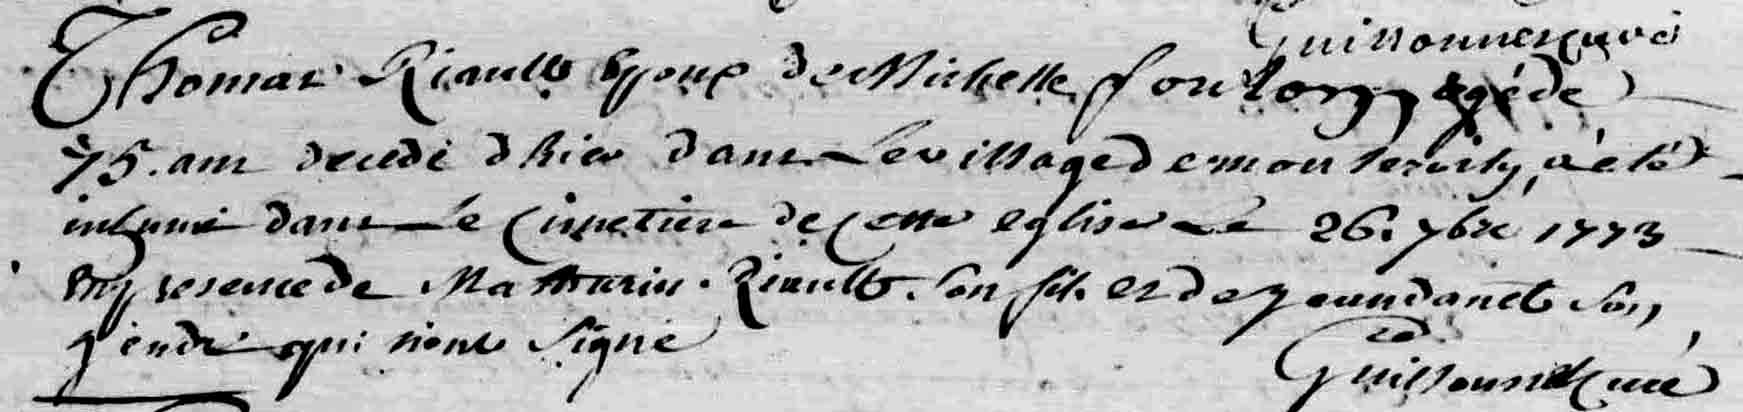 Guissonnescuré
Thomas Riault Epoux de Michelle foulon agé de
75. ans decedé dhier dans le village de mou a été
inhumé dans le Cimetiere de Cette eglise Le 26. 7bre 1773
En presence de Mathurin Riault Son fils et de jean danet Son
gendre qui nont Signé
Guissonne Curé